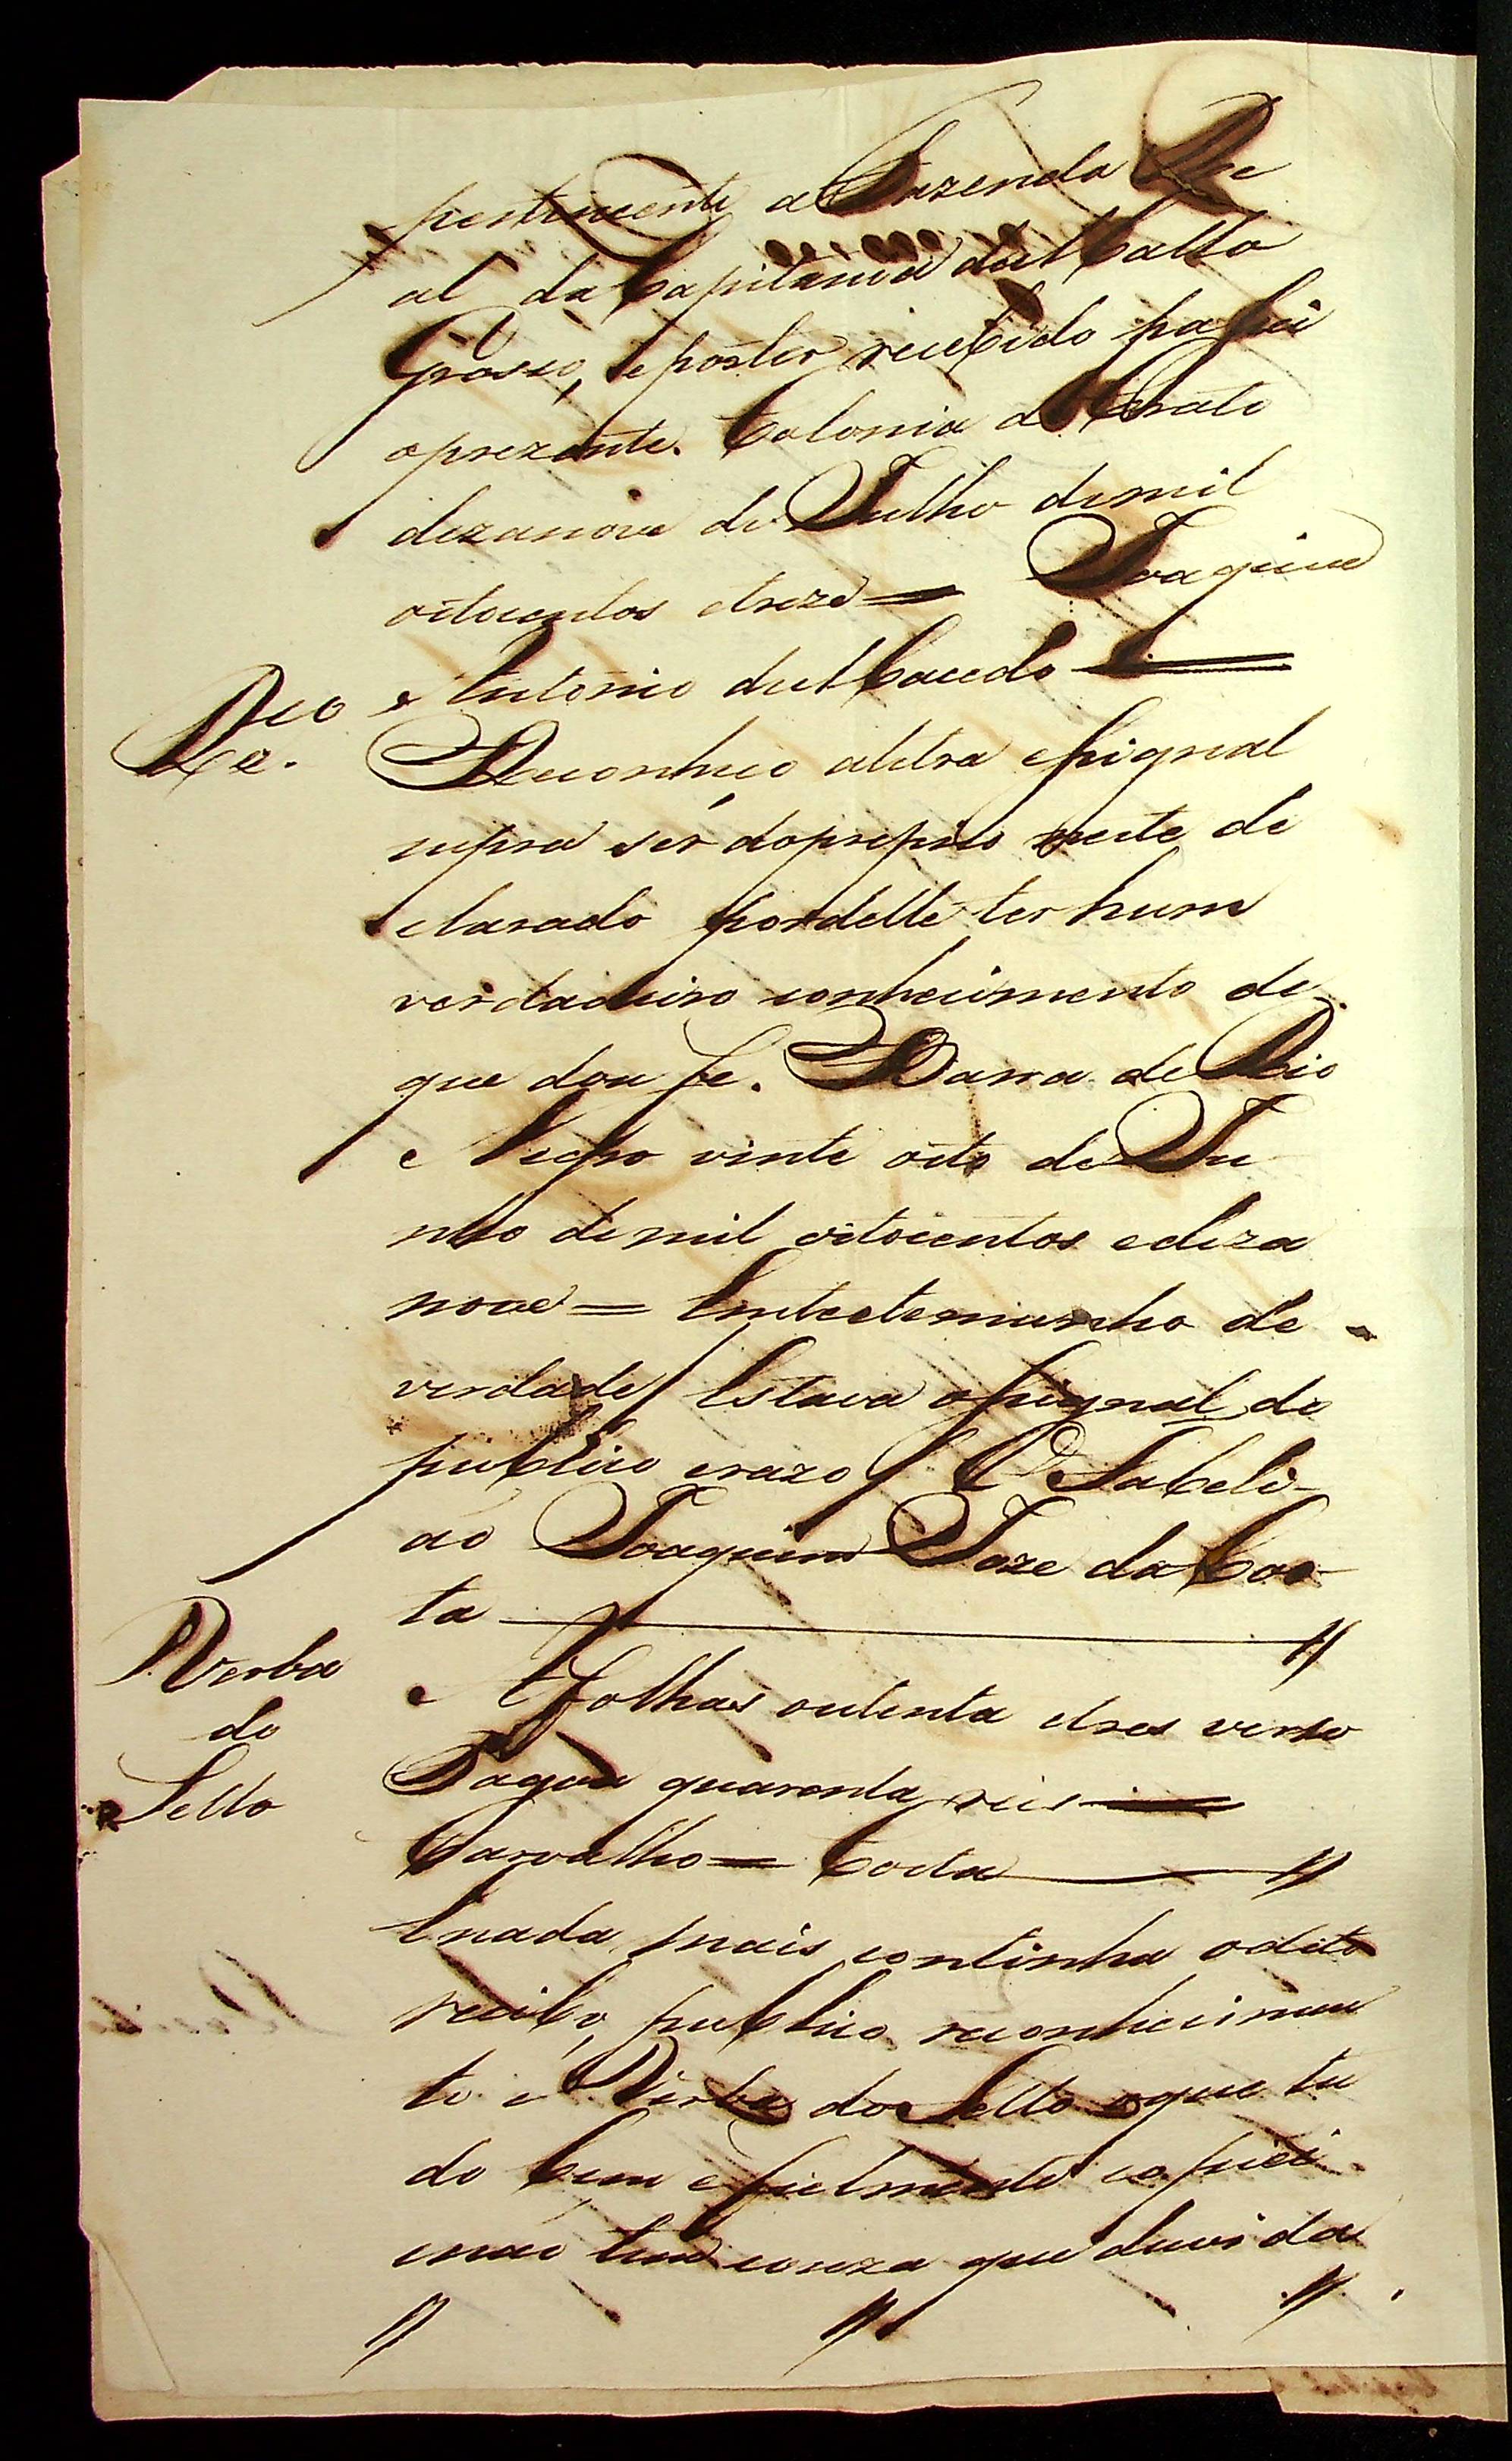 pertincente a Fazenda Re
al da Capitania de Matto
Grosso, e por ter recebido passei
o prezente. Colonia do Crato
dezanove de Julho de mil
oitocentos e treze = Joaquim
Antonio de Macedo =
Reco
Reconheço a letra e signal
supra ser do proprio neste de
clarado por delle ter hum
verdadeiro conhecimento de
que dou fe. Barra de Rio
Negro vinte oito de Ju
nho de mil oitocentos e deza
nove = Em testemunho de
verdade / Estava o signal do
publico e razo / O Tabeli-
aõ Joaquim Joze da Cos-
ta //
Verba
do
Sello
A folhas outenta e tres verso
Pagou quarenta reis =
Carvalho = Costa //
E nada mais continha o dito
recibo, publico reconhecimen
to e Verba do Sello o que tu
do bem e fielmente copiei
e naõ tem couza que duvida
// // //